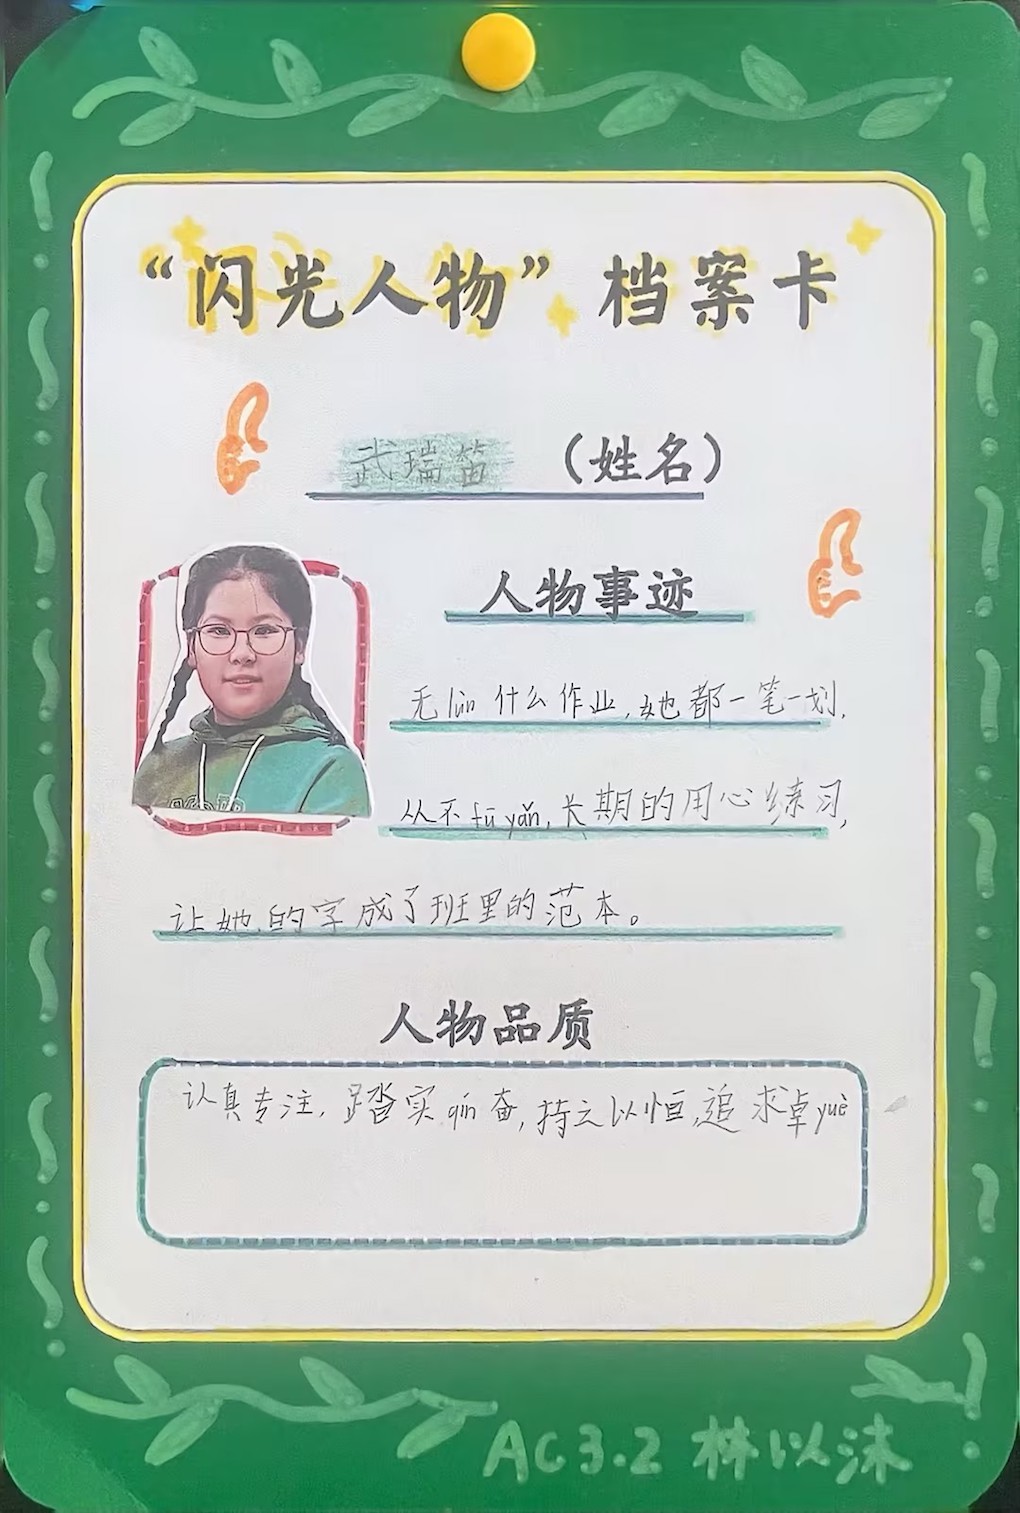 “闪光人物”档案卡
武瑞笛（姓名）
人物事迹
无lùn什么作业,她都一笔一划,
从不fū yǎn,长期的用心练习,
让她的字成了班里的范本。
人物品质
认真专注,踏实qín奋,持之以恒,追求卓yuè
AC3.2 林以沫